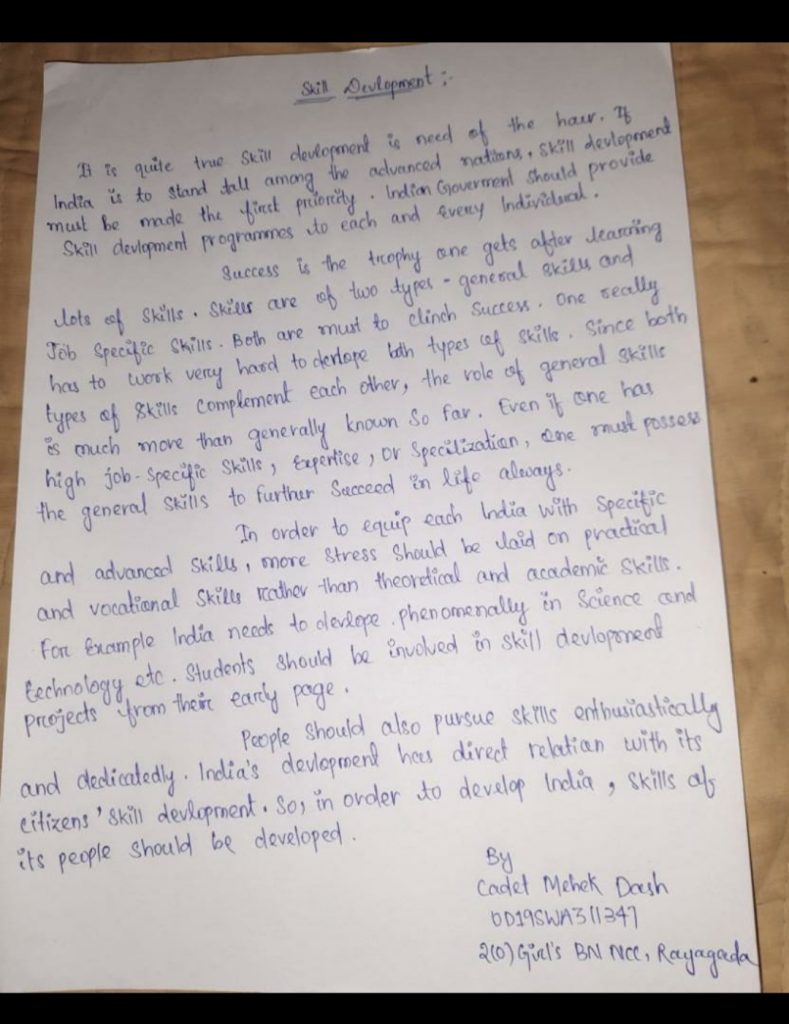 Skill Devlopment :-
It is quite true skill devlopment is need of the hour. If
India is to stand tall among the advanced nations, skill devlopment
must be made the first priority. Indian Goverment should provide
Skill devlopment programmes to each and every Individual.
Success is the trophy one gets after learning
lots of skills. Skills are of two types - general skills and
Job specific skills. Both are must to clinch success. One really
has to work very hard to devlope both types of skills. Since both
types of skills complement each other, the role of general skills
is much more than generally known so far. Even if one has
high job-specific skills, expertise, or specilization, one must possess
the general skills to further succeed in life always.
In order to equip each India with specific
and advanced skills, more stress should be laid on practical
and vocational skills rather than theoretical and academic skills.
For example India needs to devlope phenomenally in Science and
technology etc. Students should be involved in skill devlopment
projects from their early page.
People should also pursue skills enthusiastically
and dedicatedly. India's devlopment has direct relation with its
citizens' skill devlopment. So, in order to develop India, skills of
its people should be developed.
By
Cadet Mehek Dash
OD19SWA311347
2(O) Girl's BN NCC, Rayagada